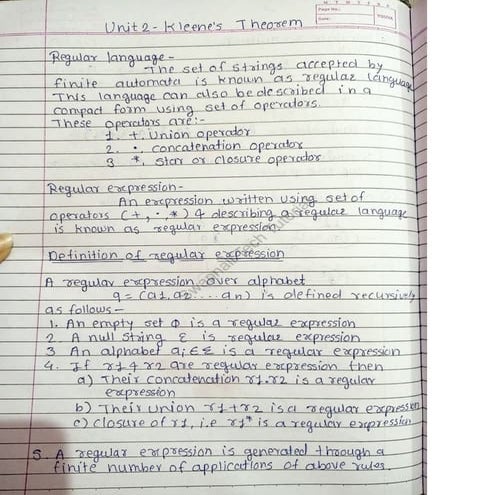 Unit 2 - Kleene's Theorem
Page No.:
Date:
Regular language -
The set of strings accepted by
finite automata is known as regular language
This language can also be described in a
compact form using set of operators.
These operators are:-
1. +, Union operator
2. ·, concatenation operator
3 *, star or closure operator
Regular expression-
An expression written using set of
operators (+, ·, *) & describing a regular language
is known as regular expression
Definition of regular expression
A regular expression over alphabet
q = (a1, a2 .... an) is defined recursively
as follows -
1. An empty set Φ is a regular expression
2. A null string ε is regular expression
3 An alphabet ai ∈ Σ is a regular expression
4. If r1 & r2 are regular expression then
a) Their concatenation r1.r2 is a regular
expression
b) Their union r1+r2 is a regular expression
c) closure of r1, i.e r1* is a regular expression
5. A regular expression is generated through a
finite number of applications of above rules.